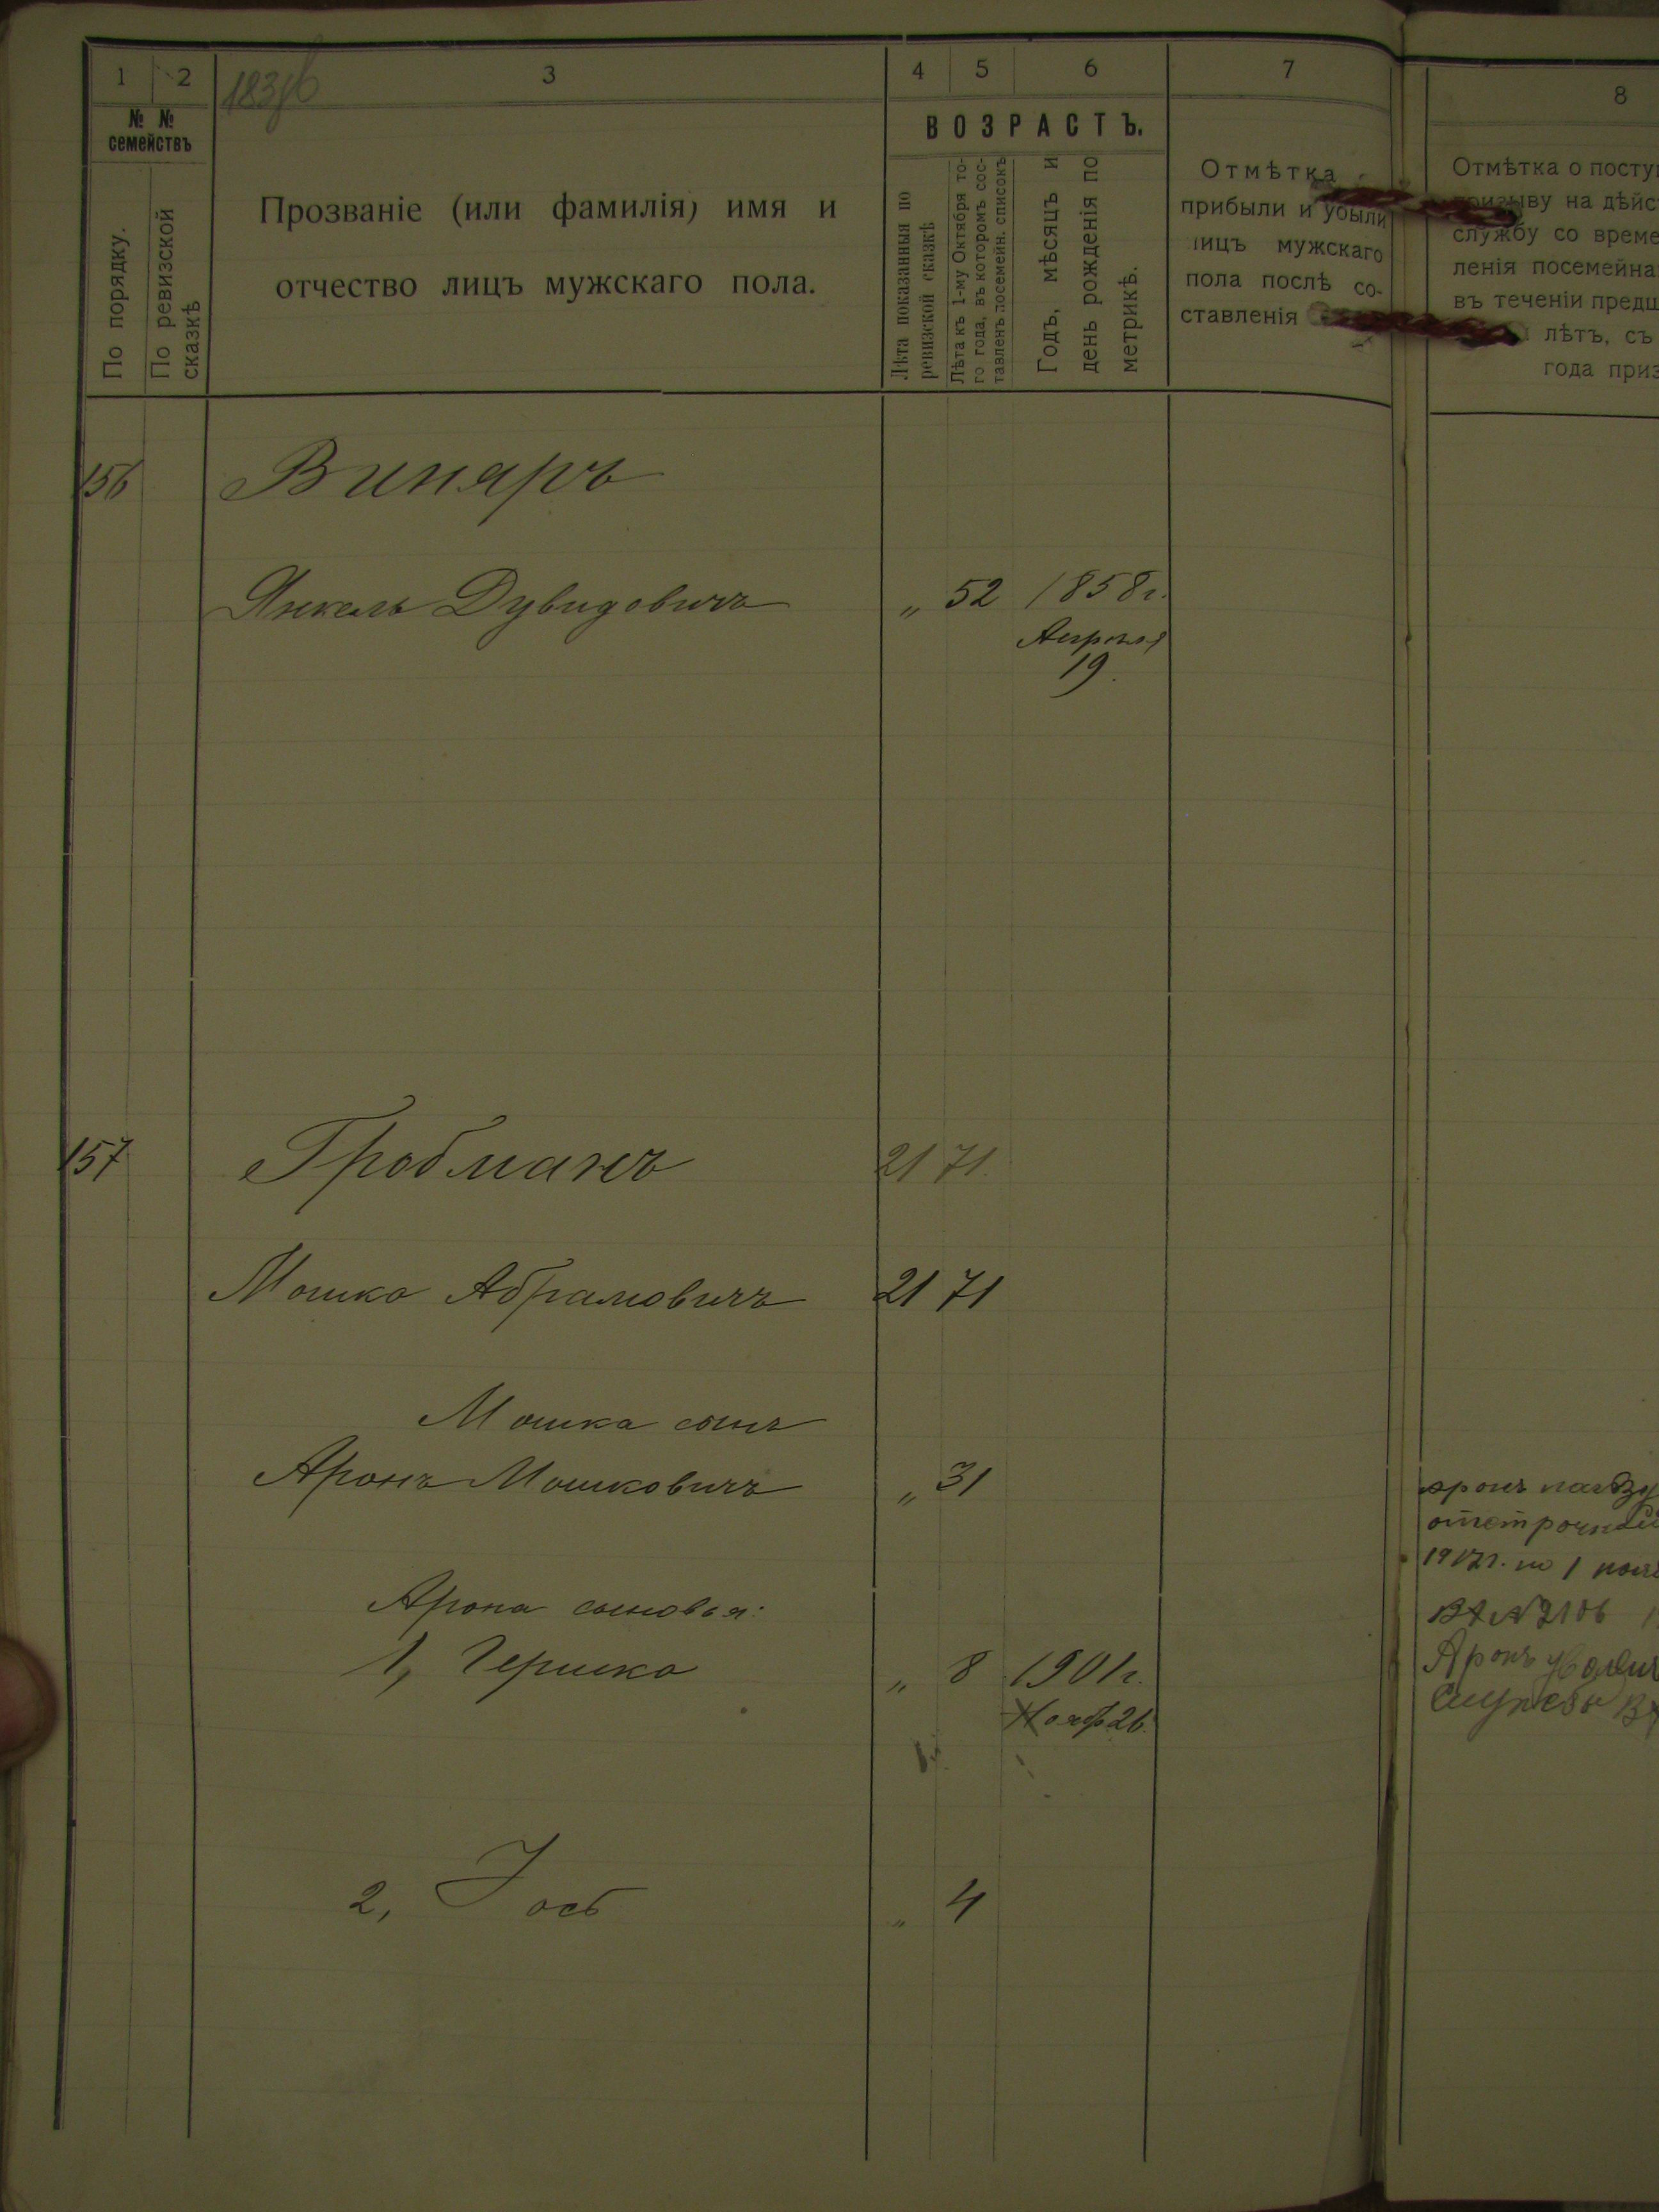 1 2 3 4 5 6 7
183об
№ № семействъ
По порядку.
По ревизской сказкѣ
Прозваніе (или фамилія) имя и
отчество лицъ мужскаго пола.
ВОЗРАСТЪ.
Лѣта показанныя по ревизской сказкѣ
Лѣта къ 1-му Октября то-
го года, въ которомъ сос-
тавленъ посемейн. списокъ
Годъ, мѣсяцъ и
день рожденія по
метрикѣ.
Отмѣтка
прибыли и убыли
лицъ мужскаго
пола послѣ со-
ставленія
8
Отмѣтка о посту
призыву на дѣйс
службу со време
ленія посемейна
въ теченіи предш
лѣтъ, съ
года приз
156 Виняръ
Янкель Дувидовичъ „ 52 1858г.
Апрѣля
19.
157 Гробманъ 21 71.
Мошко Абрамовичъ 21 71
Мошка сынъ
Аронъ Мошковичъ „ 31
Арона сыновья:
1, Гершко „ 8 1901г.
Нояб 26.
2, Іось „ 4
Аронъ
1917г. по 1
Вх № 2106
Аронъ
службы Вх